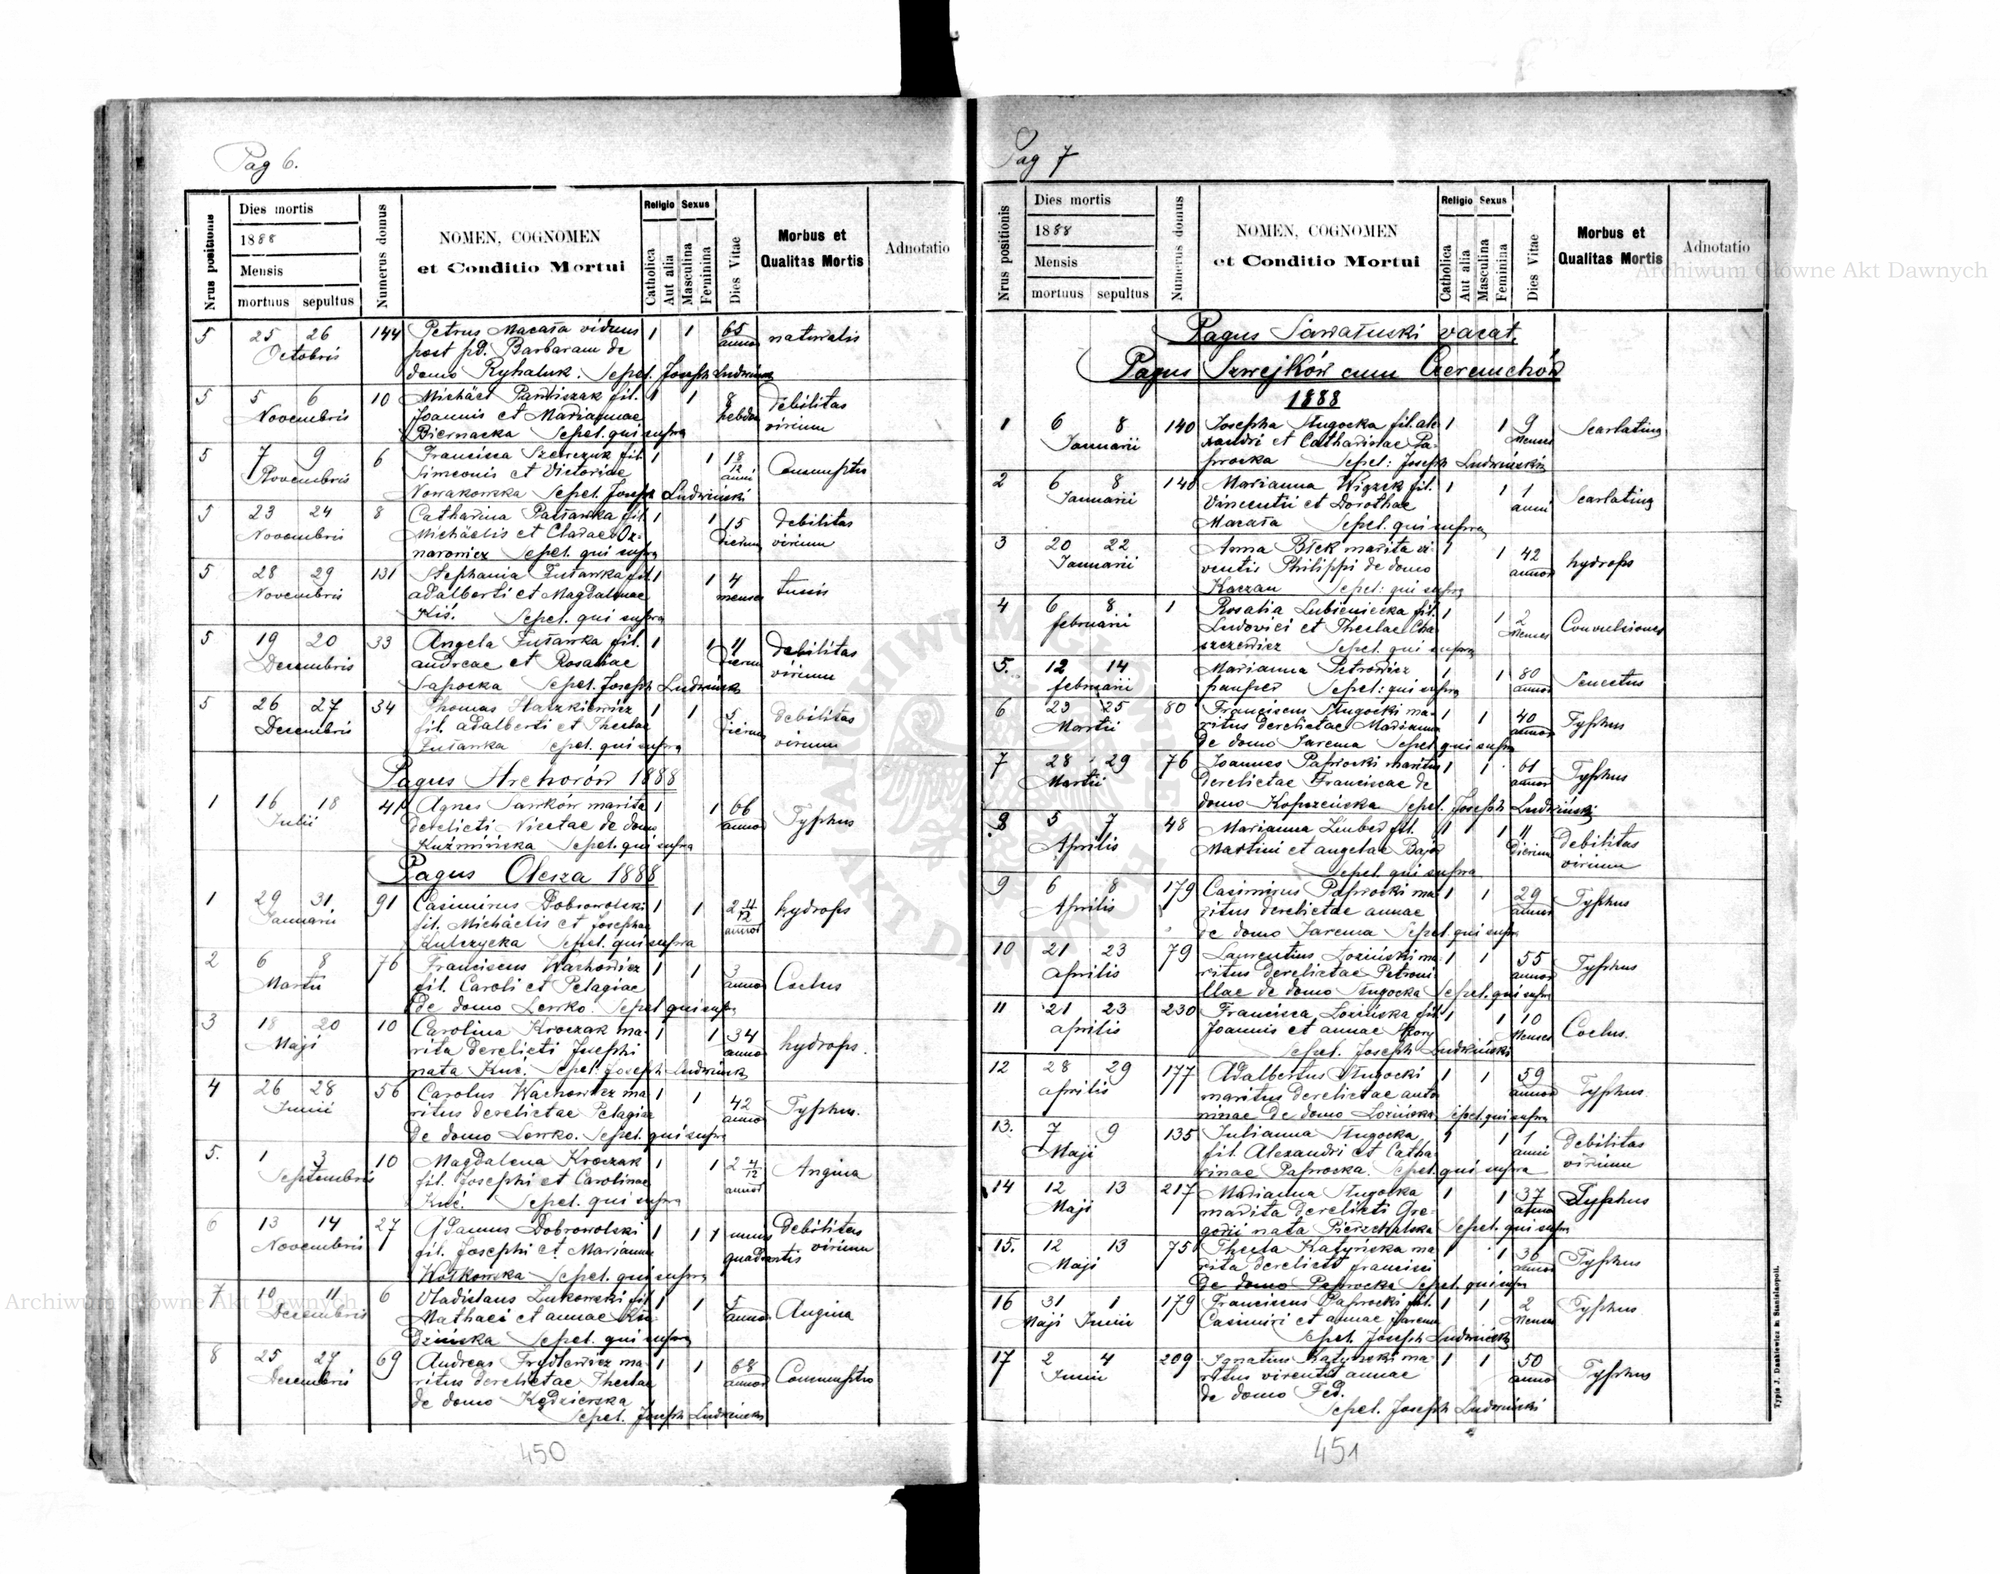 Pag 6.
Nrus positionis
Dies mortis
1888
Mensis
mortuus sepultus
Numerus domus
NOMEN, COGNOMEN
et Conditio Mortui
Religio Sexus
Catholica
Aut alia
Masculina
Feminina
Dies Vitae
Morbus et
Qualitas Mortis
Adnotatio
5 25 26 144 Petrus Macała viduus 1 1 65 naturalis
Octobris post pd. Barbaram de annor
domo Rychaluk. Sepel. Joseph Ludwiński
5 5 6 10 Michäel fil. 1 1 8 debilitas
Novembris Joannis et Mariannae hebdom virium
Biernacka Sepel. qui supra
5 7 9 6 Francisca Szewczuk fil. 1 1 1 8/12 Consumptio
Novembris Simeonis et Victoriae anni
Nowakowska Sepel. Joseph Ludwiński
5 23 24 8 Catharina fil. 1 1 15 debilitas
Novembris Michäelis et Clarae Oz- dierum virium
narowicz Sepel. qui supra
5 28 29 131 Stephania Żuławka fil. 1 1 4 tussis
Novembris adalberti et Magdalenae menses
Kiś. Sepel. qui supra
5 19 20 33 Angela Żuławka fil. 1 1 11 debilitas
Decembris andreae et Rosaliae dierum virium
Sapocka Sepel. Joseph Ludwiński
5 26 27 34 Thomas Hatzkiewicz 1 1 5 debilitas
Decembris fil. adalberti et Theclae dierum virium
Żuławka Sepel. qui supra
Pagus Hrehorów 1888
1 16 18 41 Agnes Sawków marita 1 1 66 Typhus
Julii derelicti Nicetae de domo annor
Kuźmińska Sepel. qui supra
Pagus Olesza 1888
1 29 31 91 Casimirus Dobrowolski 1 1 2 4/12 hydrops
Januarii fil. Michäelis et Josephae annor
Kulczycka Sepel. qui supra
2 6 8 76 Franciscus Wachowicz 1 1 3 Coclus
Martii fil. Caroli et Pelagiae annor
de domo Lewko. Sepel. qui supra
3 18 20 10 Carolina Kroczak ma- 1 1 34 hydrops.
Maji rita derelicti Josephi annor
nata Kuć. Sepel. Joseph Ludwiński
4 26 28 56 Carolus Wachowicz ma- 1 1 42 Typhus.
Junii ritus derelictae Pelagiae annor
de domo Lewko. Sepel. qui supra
5. 1 3 10 Magdalena Kroczak 1 1 2 4/12 Angina
Septembris fil. Josephi et Carolinae annor
Kuć. Sepel. qui supra
6 13 14 27 Adamus Dobrowolski 1 1 1 unius Debilitas
Novembris fil. Josephi et Marianna quadrantis virium
Wołkowska Sepel. qui supra
7 10 11 6 Vladislaus Żukowski fil. 1 1 5 Angina
Decembris Mathaei et annae Ku- annor
dzińska Sepel. qui supra
8 25 27 69 Andreas Frydlewicz ma- 1 1 68 Consumptio
Decembris ritus derelictae Theclae annor
de domo Kędzierska
Sepel. Joseph Ludwiński
450
Pag 7
Nrus positionis
Dies mortis
1888
Mensis
mortuus sepultus
Numerus domus
NOMEN, COGNOMEN
et Conditio Mortui
Religio Sexus
Catholica
Aut alia
Masculina
Feminina
Dies Vitae
Morbus et
Qualitas Mortis
Adnotatio
Pagus Sawałuski vacat.
Pagus Szwejków cum Czeremchów
1888
1 6 8 140 Josepha Ługocka fil. ale- 1 1 9 Scarlatina
Januarii xandri et Catharinae Pa- Menses
procka Sepel: Joseph Ludwiński
2 6 8 140 Marianna Wiązek fil. 1 1 1 Scarlatina
Januarii Vincentii et Dorothae anni
Macała Sepel. qui supra
3 20 22 Anna Błek marita vi- 1 1 42 hydrops
Januarii ventis Philippi de domo annor
Kaczan Sepel: qui supra
4 6 8 1 Rosalia Lubieniecka fil. 1 1 2 Convulsiones
februarii Ludovici et Theclae Cha- Menses
szczewicz Sepel. qui supra
5. 12 14 Marianna Petrowicz 1 1 80 Senectus
februarii pauper Sepel: qui supra annor
6 23 25 80 Franciscus Ługocki ma- 1 1 40 Typhus
Martii ritus derelictae Marianna annor
de domo Jarema Sepel. qui supra
7 28 29 76 Joannes Paprocki maritus 1 1 61 Typhus
Martii derelictae Franciscae de annor
domo Kopczeńska Sepel. Joseph Ludwiński
8 5 7 48 Marianna Zimber fil. 1 1 11 Debilitas
Aprilis Martini et angelae Bajor dierum virium
Sepel. qui supra
9 6 8 179 Casimirus Paprocki ma- 1 1 29 Typhus
Aprilis ritus derelictae annae annor
de domo Jarema Sepel. qui supra
10 21 23 79 Laurentius Łoziński ma- 1 1 55 Typhus
aprilis ritus derelictae Petroni- annor
llae de domo Ługocka Sepel. qui supra
11 21 23 230 Francisca Łozińska fil. 1 1 10 Coclus.
aprilis Joannis et annae Menses
Sepel. Joseph Ludwiński
12 28 29 177 Adalbertus Ługocki 1 1 59 Typhus.
aprilis maritus derelictae anto- annor
ninae de domo Łozińska Sepel. qui supra
13. 7 9 135 Julianna Ługocka 1 1 1 Debilitas
Maji fil. Alexandri et Catha- anni virium
rinae Paprocka. Sepel. qui supra
14 12 13 217 Marianna Ługocka 1 1 37 Typhus
Maji marita derelicti Gre- annor
gorii nata Pierzchalska Sepel. qui supra
15. 12 13 75 Thecla Katyńska ma- 1 1 36 Typhus
Maji rita derelicti francisci annor
de domo Paprocka Sepel. qui supra
16 31 1 179 Franciscus Paprocki fil. 1 1 2 Typhus
Maji Junii Casimiri et annae Jarema Menses
Sepel. Joseph Ludwiński
17 2 4 209 Ignatius Katyński ma- 1 1 50 Typhus
Junii ritus viventis annae annor
de domo Fed.
Sepel. Joseph Ludwiński
451
Typis J. Dankiewicz in Stanislaopoli.
Archiwum Główne Akt Dawnych
Archiwum Główne Akt Dawnych
ARCHIWUM GŁÓWNE AKT DAWNYCH